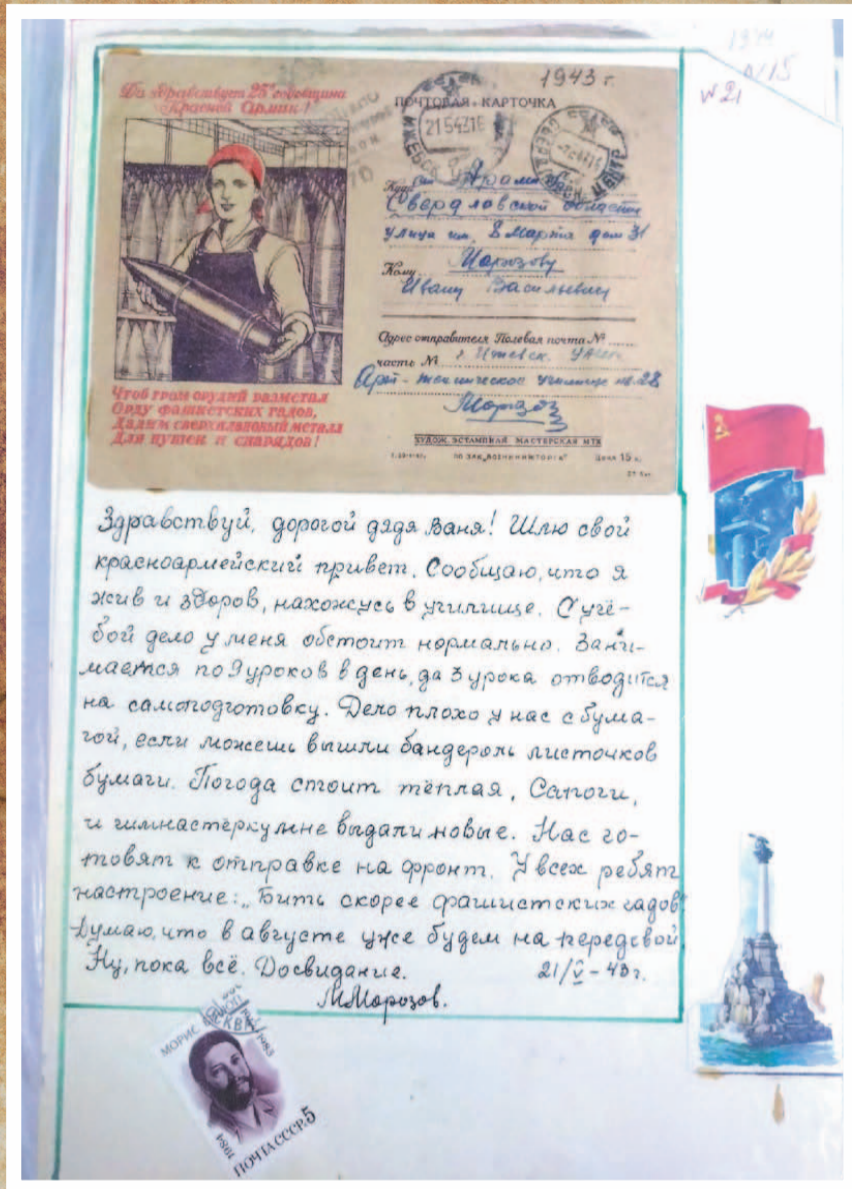 1944
N15
N 21
Да здравствует 25ая годовщина
Красной Армии!
1943 г.
ПОЧТОВАЯ КАРТОЧКА
21 5 43 16
Куда
Свердловской области
улица им. 8 Марта дом 31
Кому Морозову
Ивану Васильевичу
Адрес отправителя Полевая почта №
часть № г. Ижевск
Арт-техническое училище
Морозов
Чтоб гром орудий разметал
Орду фашистских гадов,
Дадим сверхплановый металл
Для пушек и снарядов!
ХУДОЖ. ЭСТАМПНАЯ МАСТЕРСКАЯ
Цена 15 к.
Здравствуй, дорогой дядя Ваня! Шлю свой
красноармейский привет. Сообщаю, что я
жив и здоров, нахожусь в училище. С учё-
бой дело у меня обстоит нормально. Зани-
мается по 9 уроков в день, да 3 урока отводится
на самоподготовку. Дело плохо у нас с бума-
гой, если можешь вышли бандероль листочков
бумаги. Погода стоит тёплая, Сапоги,
и гимнастёрку мне выдали новые. Нас го-
товят к отправке на фронт. У всех ребят
настроение: „Бить скорее фашистских гадов".
Думаю, что в августе уже будем на передовой.
Ну, пока всё. Досвидание. 21/V - 43 г.
ММорозов.
МОРИС
1983
1984
ПОЧТА СССР 5